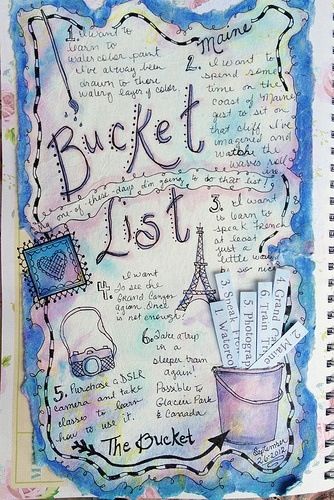 1. I want to
learn to
watercolor paint
I've always been
drawn to those
watery layers of color.
Maine
2. I want to
spend some
time on the
coast of Maine
just to sit on
that cliff I've
imagined and
watch the
waves roll
in
Bucket
one of these days I'm going to do that list!
List
3. I want
to learn to
speak French
at least
just a
little
be so nice
4. I want
to see the
Grand Canyon
again. Once
is not enough!
5. Purchase a DSLR
camera and take
classes to learn
how to use it.
6. Take a trip
in a
sleeper train
again!
Possible to
Glacier Park
& Canada
The Bucket
1. Waterco
3. Speak Fre
5. Photograp
6. Train
4. Grand C
2. Maine
September
26, 2012